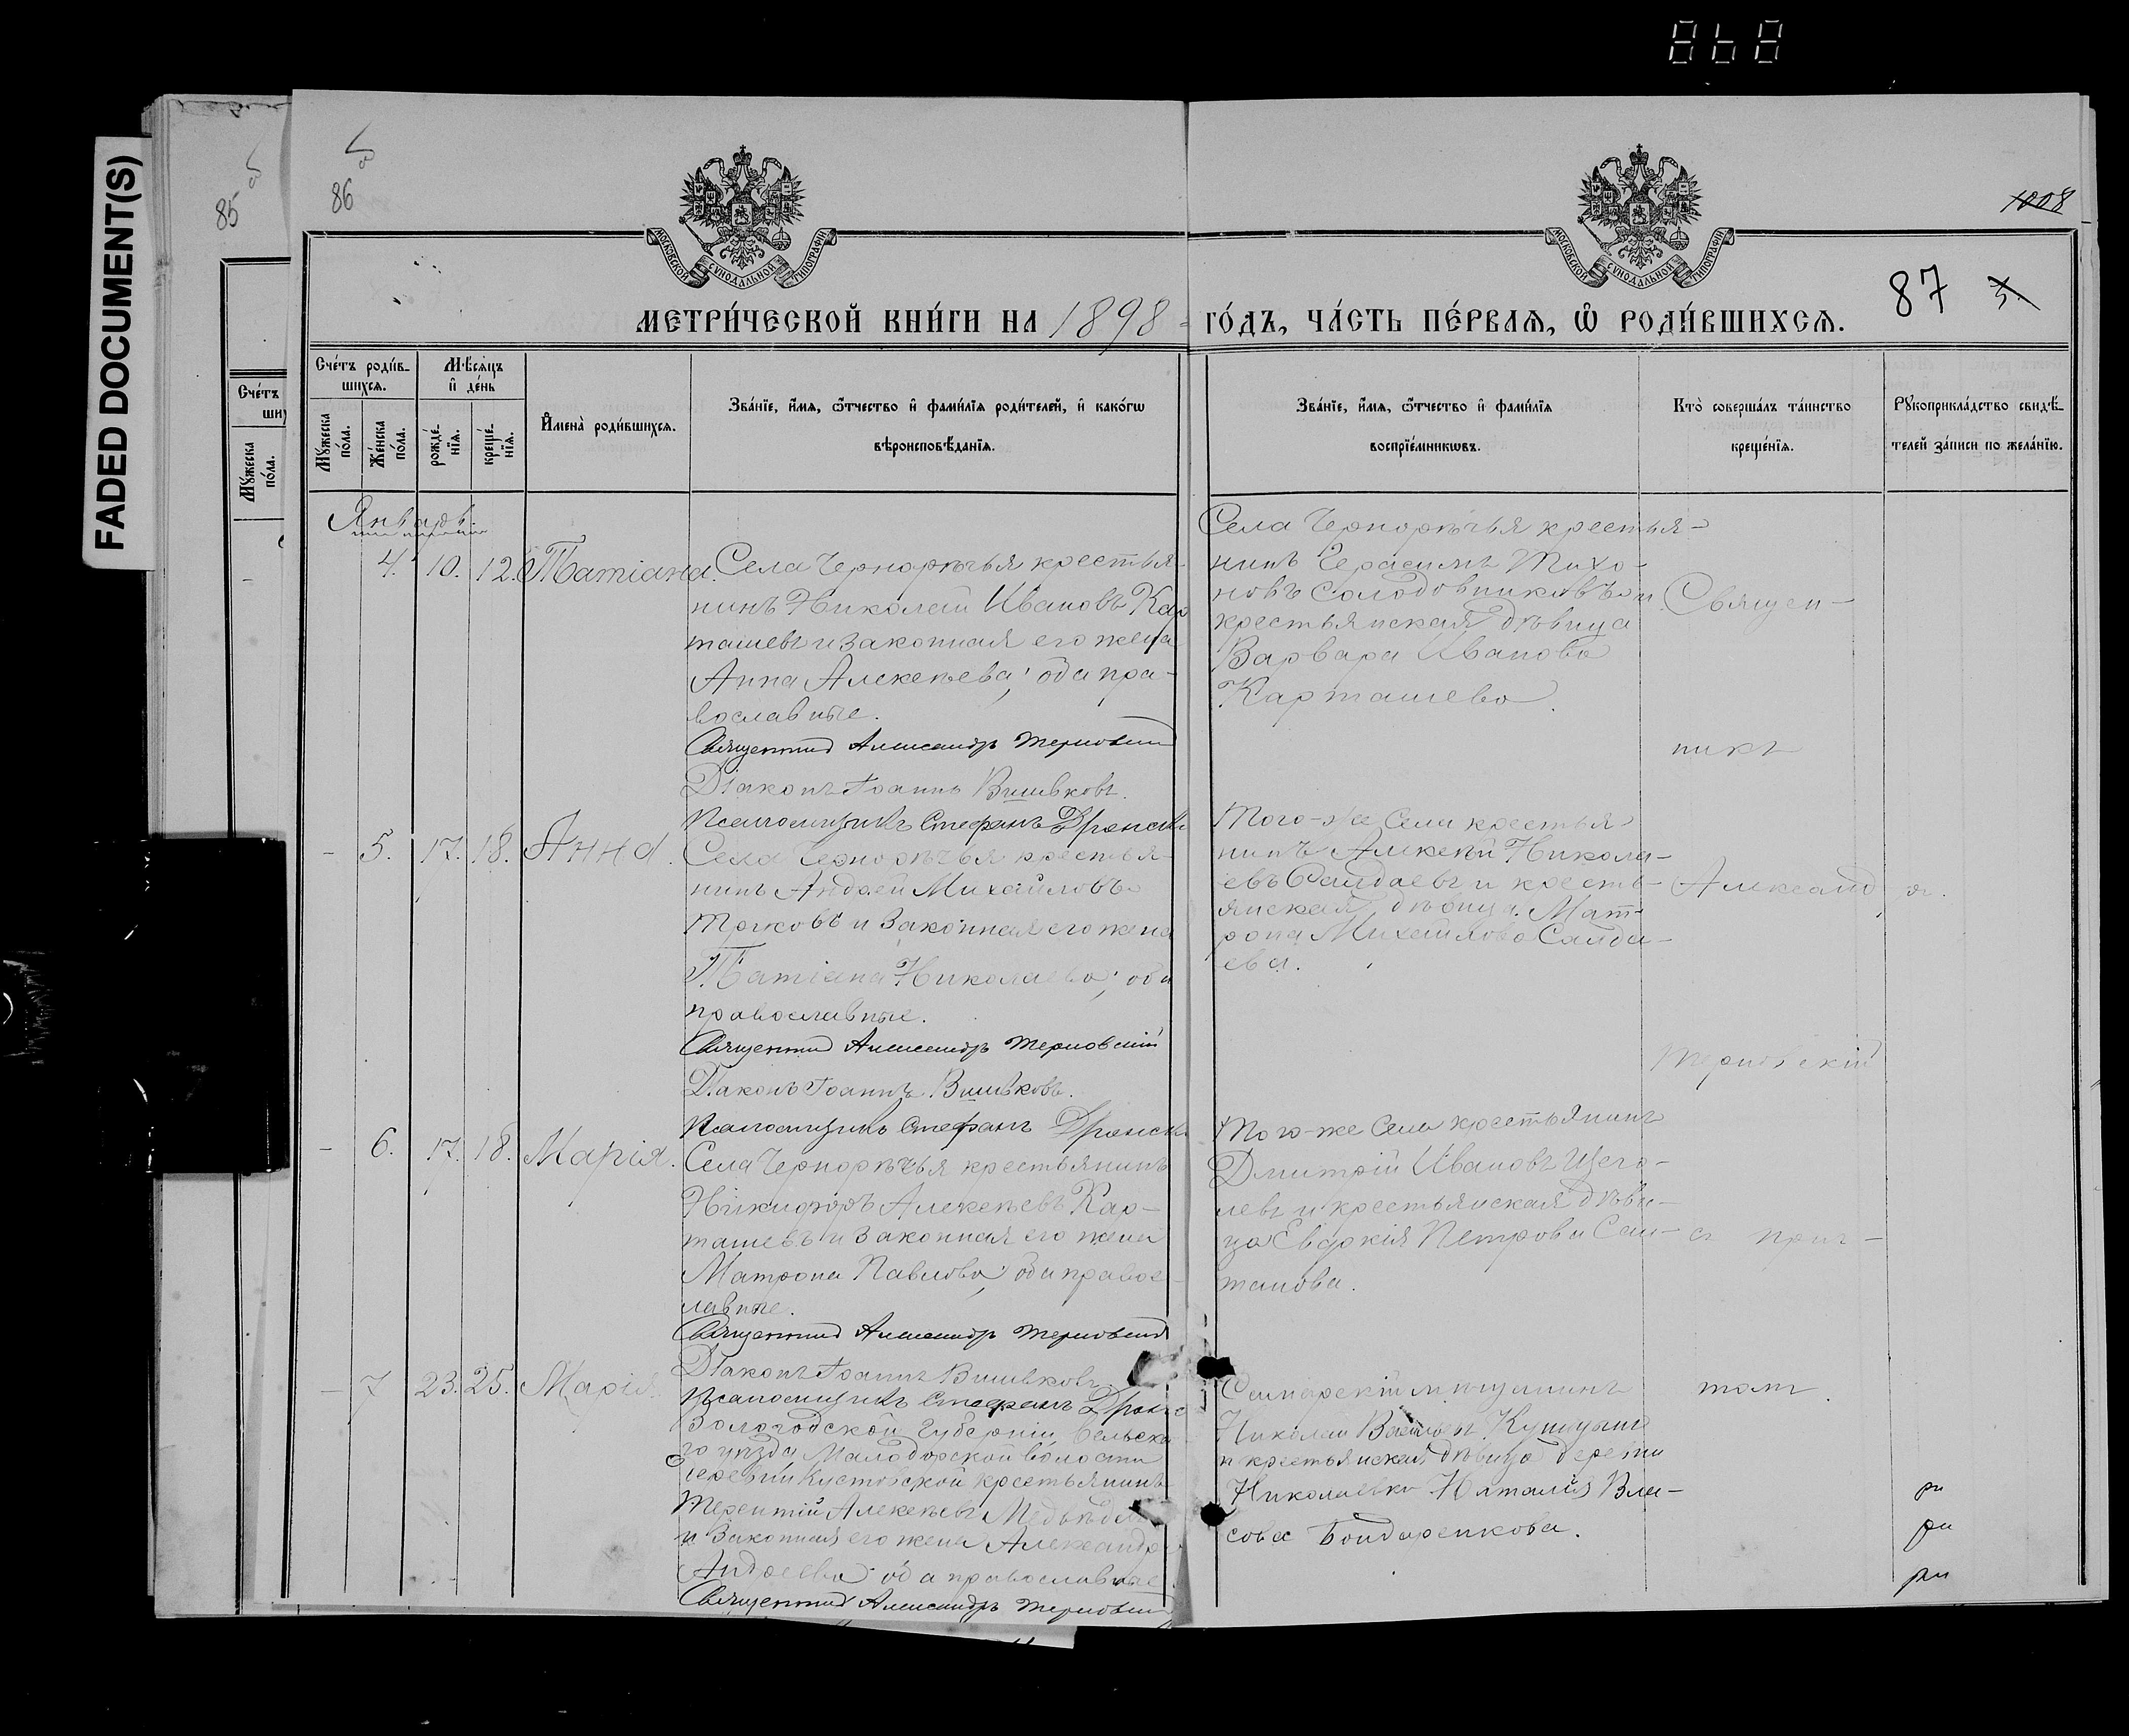 868
FADED DOCUMENT(S)
85
86
1008
87
МОСКОВСКОЙ СѴНОДАЛЬНОЙ ТИПОГРАФІИ
МОСКОВСКОЙ СѴНОДАЛЬНОЙ ТИПОГРАФІИ
МЕТРИ́ЧЕСКОЙ КНИ́ГИ НА 1898 ГО́ДЪ, ЧА́СТЬ ПЕ́РВАѦ, Ѽ РОДИ́ВШИХСѦ.
Сче́тъ роди́в-
шихсѧ.
Мѣ́сѧцъ
и҆ де́нь
Мꙋ́жеска
по́ла.
Же́нска
по́ла.
рожде́-
нїѧ.
креще́-
нїѧ.
И҆мена̀ роди́вшихсѧ.
Зва́нїе, и҆́мѧ, ѻ҆́тчество и҆ фами́лїѧ роди́телей, и҆ како́гѡ
вѣроисповѣ́данїѧ.
Зва́нїе, и҆́мѧ, ѻ҆́тчество и҆ фами́лїѧ
воспрїе́мникѡвъ.
Кто̀ соверша́лъ та́инство
креще́нїѧ.
Рꙋкоприкла́дство свидѣ́-
телей за́писи по жела́нїю.
Сче́тъ
Мꙋ́жеска
по́ла.
Январь
4. 10. 12. Татіана.
Села Чернорѣчья крестья-
нинъ Николай Ивановъ Кар
ташевъ и законная его жена
Анна Алексѣева; оба пра-
вославные.
Священникъ Александръ Терновскій
Діаконъ Іоаннъ Вишвковъ.
Псаломщикъ Стефанъ
Села Чернорѣчья крестья-
нинъ Герасимъ Тихо-
новъ Солодовниковъ и
крестьянская дѣвица
Варвара Иванова
Карташева.
Священ-
никъ
- 5. 17. 18. Анна.
Села Чернорѣчья крестья-
нинъ Андрей Михайловъ
и законная его жена
Татіана Николаева; оба
православные.
Священникъ Александръ Терновскій
Діаконъ Іоаннъ Вишвковъ.
Псаломщикъ Стефанъ
Того-же Села крестья-
нинъ Алексѣй Никола-
евъ Саидаевъ и кресть-
янская дѣвица Мат-
рона Михайлова Саида-
ева.
Александ
Терновскій
- 6. 17. 18. Марія.
Села Чернорѣчья крестьянинъ
Никифоръ Алексѣевъ Кар-
ташевъ и законная его жена
Матрона Павлова; оба правос-
лавные.
Священникъ Александръ Терновскій
Діаконъ Іоаннъ Вишвковъ
Псаломщикъ Стефанъ
Того-же Села крестьянинъ
Дмитрій Ивановъ Щего-
левъ и крестьянская дѣви-
ца Евдокія Петрова Сал-
танова.
съ прич-
- 7 23. 25. Марія.
Вологодской губерніи Вельска
го уѣзда Малодорской волости
деревни Кустовской крестьянинъ
Терентій Алексѣевъ
и законная его жена Александра
Андреева; оба православные.
Священникъ Александръ Терновскій
Самарскій мѣщанинъ
Николай
и крестьянская дѣвица деревни
Николаевки Наталія Вла-
сова Бондаренкова.
томъ.